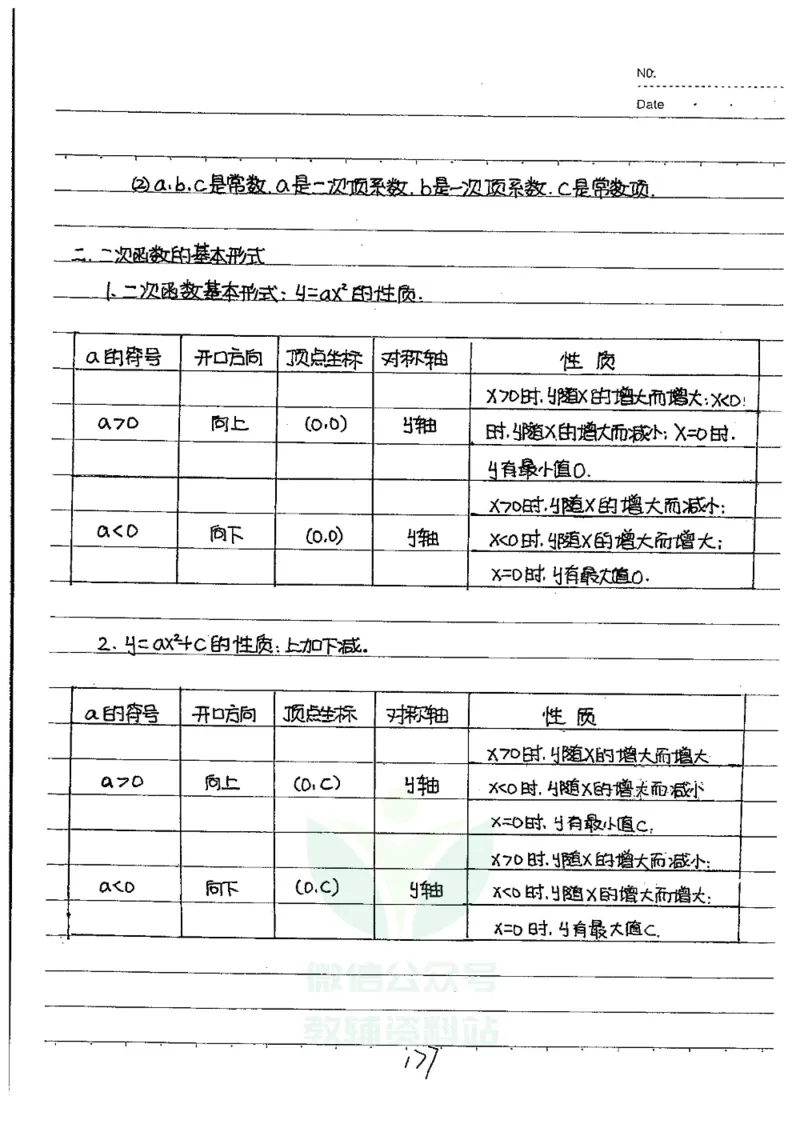 NO.
Date
(2) a.b.c是常数,a是二次项系数,b是一次项系数.c是常数项.
二.二次函数的基本形式
1.二次函数基本形式:y=ax²的性质.
a的符号 开口方向 顶点坐标 对称轴 性质
x>0时,y随x的增大而增大;x<0
a>0 向上 (0,0) y轴 时,y随x的增大而减小;x=0时.
y有最小值0.
x>0时,y随x的增大而减小;
a<0 向下 (0,0) y轴 x<0时,y随x的增大而增大;
x=0时,y有最大值0.
2.y=ax²+c的性质:上加下减。
a的符号 开口方向 顶点坐标 对称轴 性质
x>0时,y随x的增大而增大
a>0 向上 (0,c) y轴 x<0时,y随x的增大而减小
x=0时,y有最小值c,
x>0时,y随x的增大而减小;
a<0 向下 (0,c) y轴 x<0时,y随x的增大而增大;
x=0时,y有最大值c.
微信公众号
教辅资料站
177